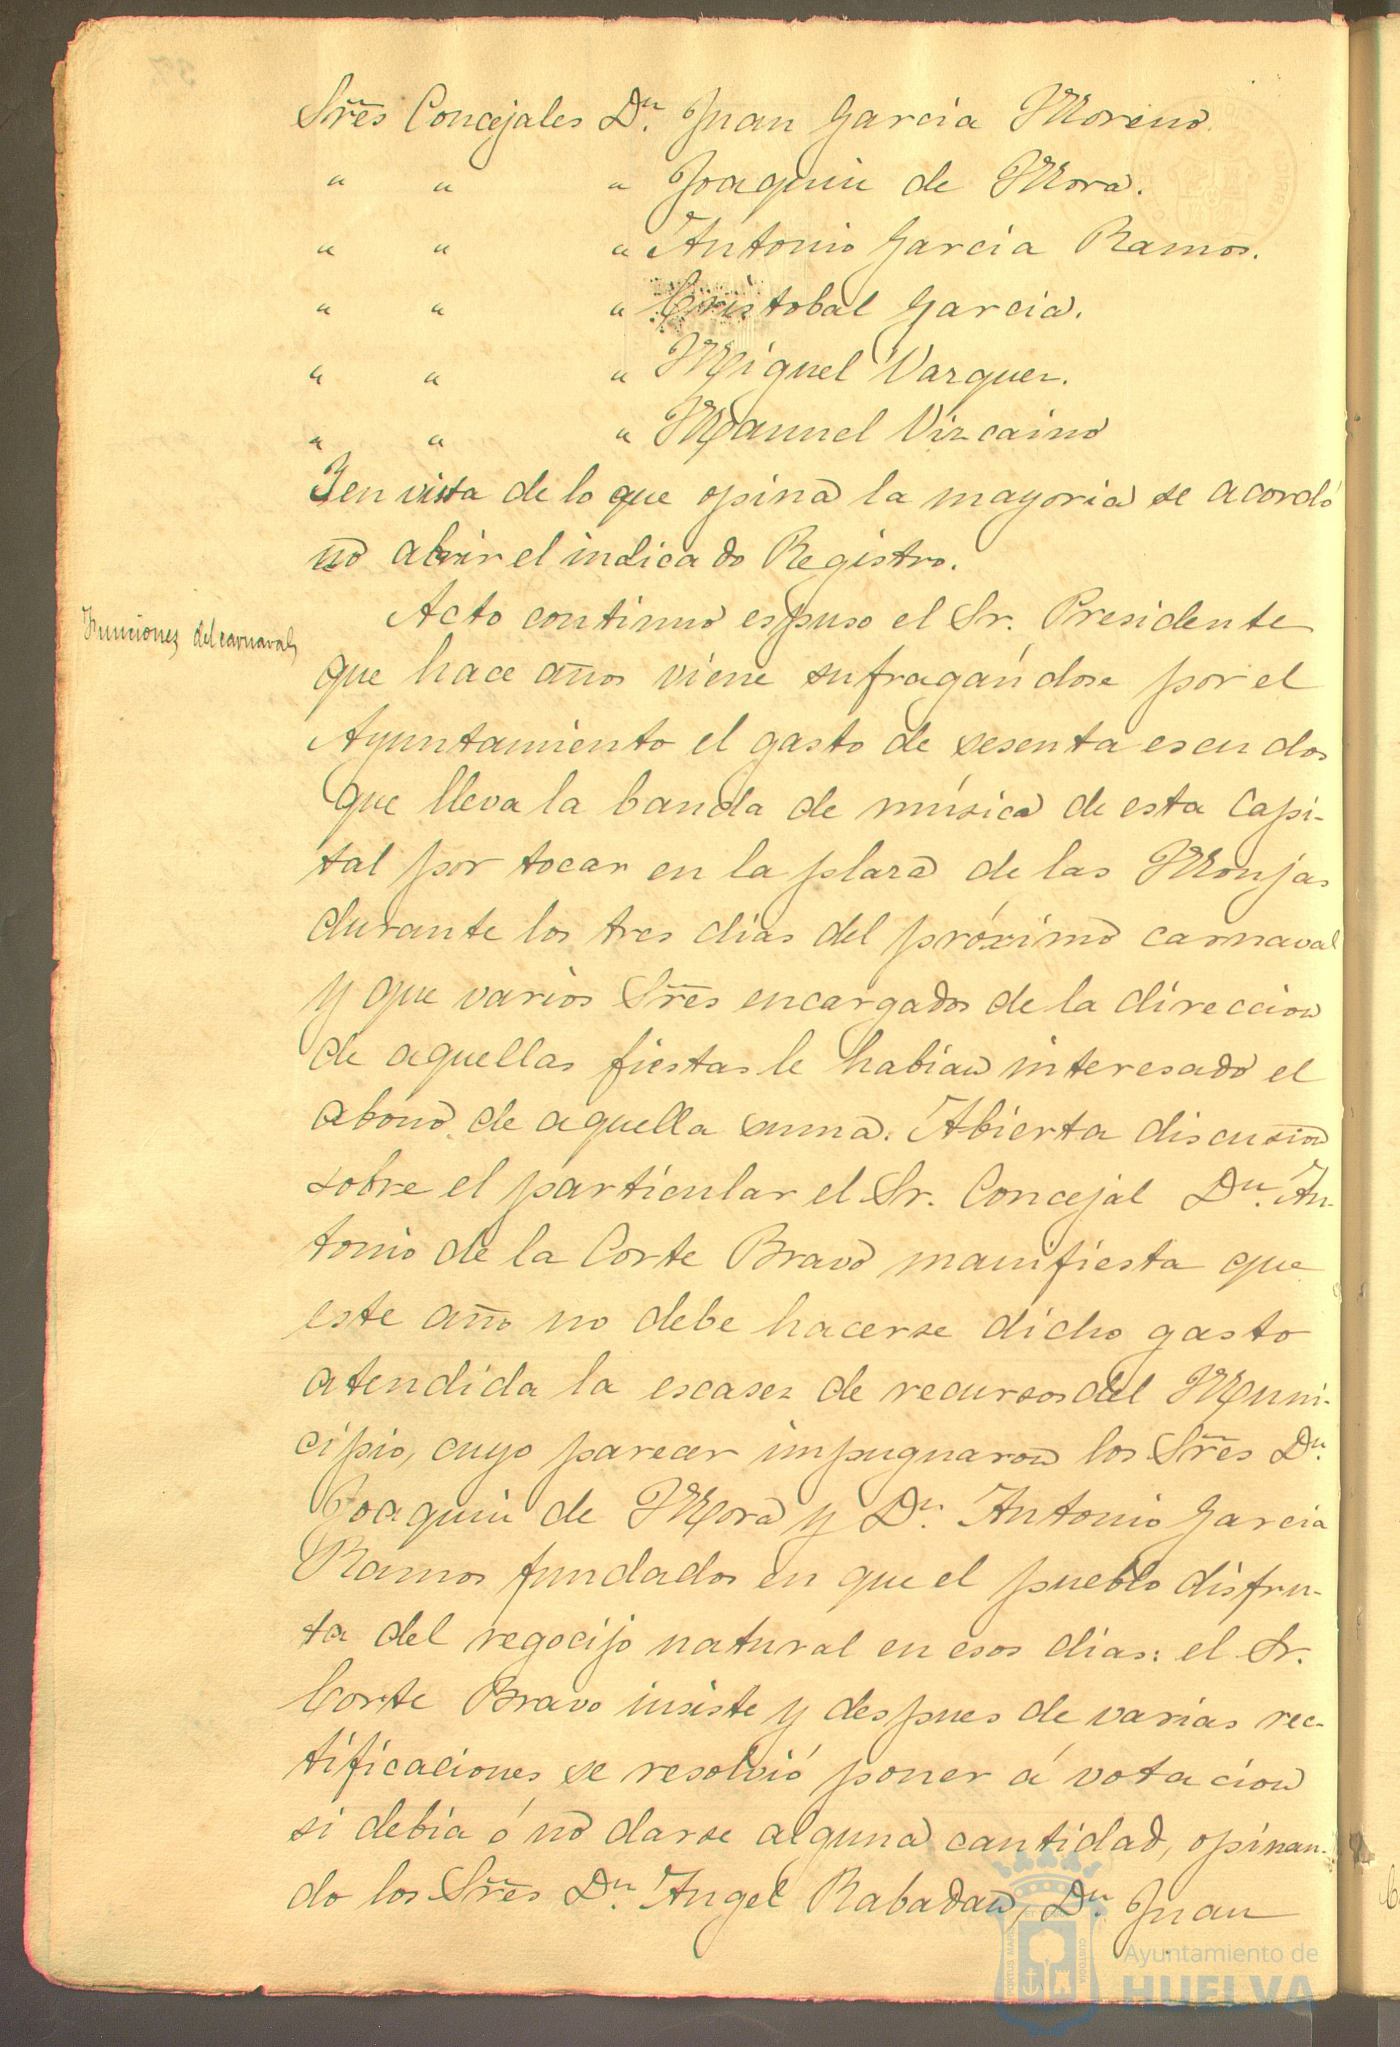 Sr̃es Concejales Dn. Juan Garcia Moreno.
" " " Joaquin de Mora.
" " " Antonio Garcia Ramos.
" " " Cristobal Garcia.
" " " Miguel Vazquez.
" " " Manuel Vizcaino
Y en vista de lo que opina la mayoria se acordó
no abrir el indicado Registro.
Funciones del carnaval
Acto continuo espuso el Sr. Presidente
que hace años viene sufragándose por el
Ayuntamiento el gasto de sesenta escudos
que lleva la banda de música de esta Capi-
tal por tocar en la plaza de las Monjas
durante los tres dias del próximo carnaval
y que varios Sr̃es encargados de la direccion
de aquellas fiestas le habian interesado el
abono de aquella suma. Abierta discusion
sobre el particular el Sr. Concejal Dn. An-
tonio de la Corte Bravo manifiesta que
este año no debe hacerse dicho gasto
atendida la escasez de recursos del Muni-
cipio, cuyo parecer impugnaron los Sr̃es Dn.
Joaquin de Mora y Dn. Antonio Garcia
Ramos fundados en que el pueblo disfru-
ta del regocijo natural en esos dias: el Sr.
Corte Bravo insiste y despues de varias rec-
tificaciones se resolvió poner á votacion
si debia ó no darse alguna cantidad, opinan-
do los Sr̃es Dn. Angel Rabadan, Dn Juan
Ayuntamiento de
HUELVA